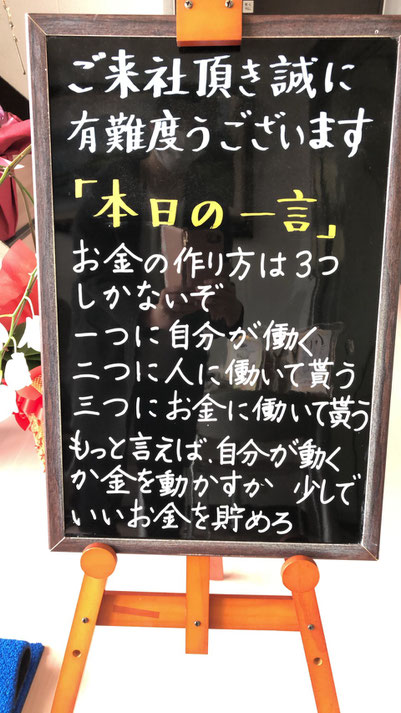 ご来社頂き誠に
有難度うございます
「本日の一言」
お金の作り方は3つ
しかないぞ
一つに自分が働く
二つに人に働いて貰う
三つにお金に働いて貰う
もっと言えば、自分が動く
か金を動かすか 少しで
いいお金を貯めろ